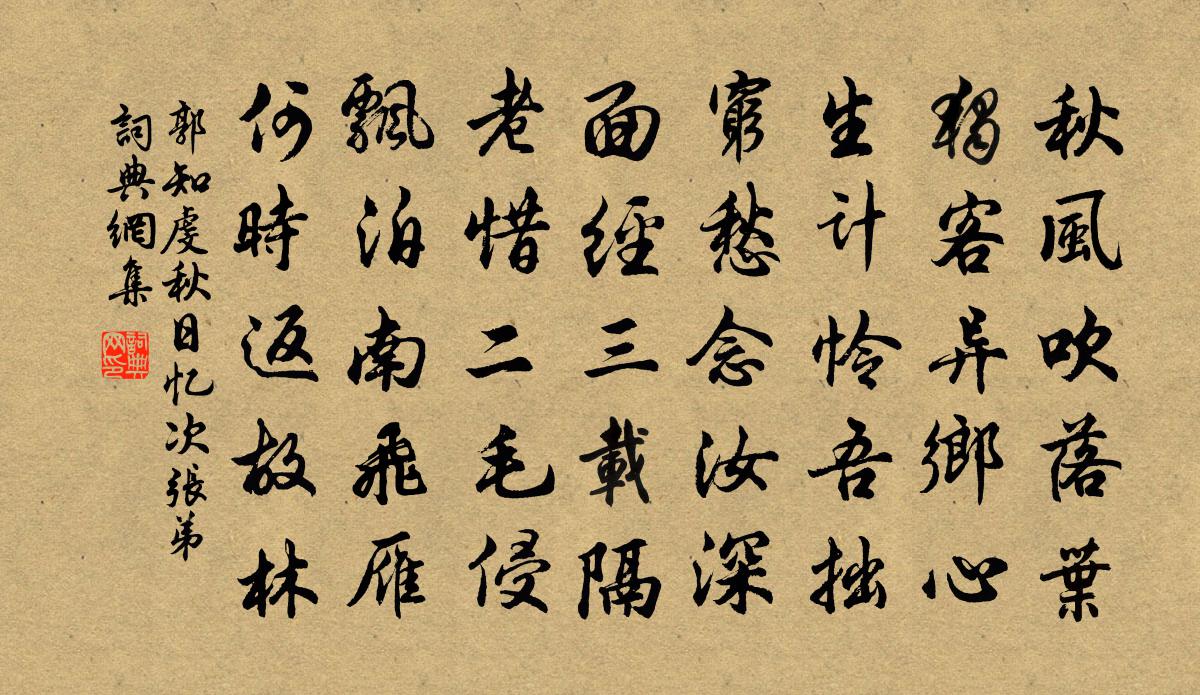 秋風吹落葉
獨客异鄉心
生计怜吾拙
窮愁念汝深
面經三載隔
老惜二毛侵
飄泊南飛雁
何時返故林
郭知虔秋日忆次張弟
詞典網集
詞典网印